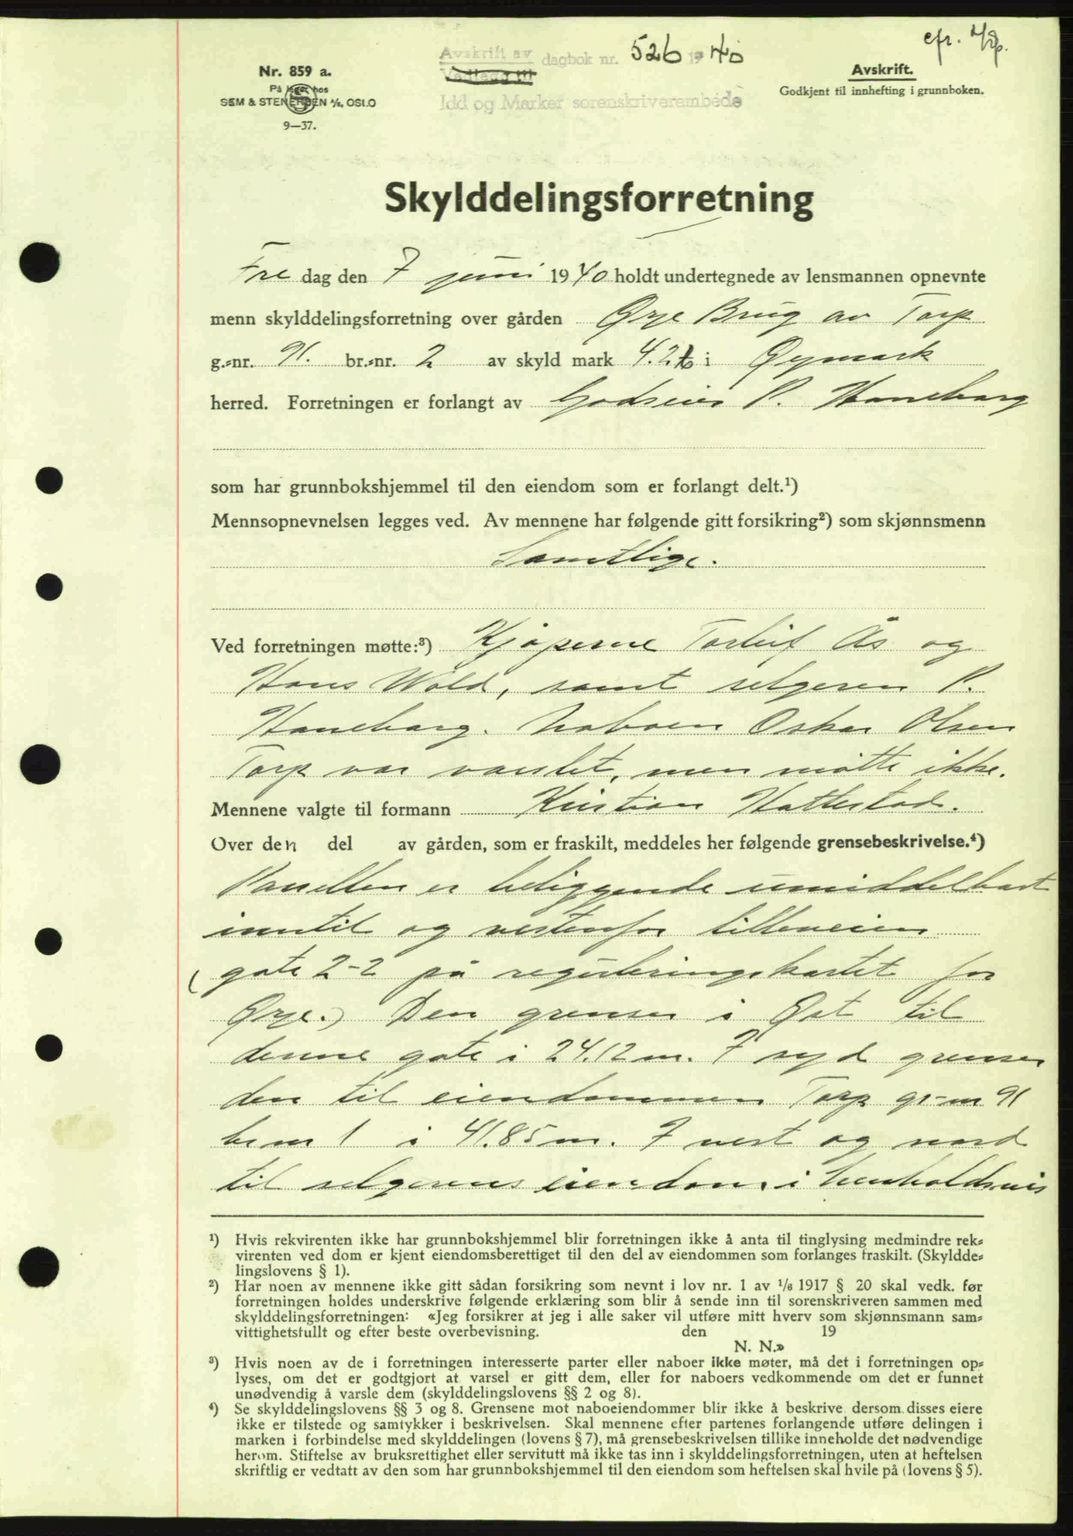 efr. 4/9p.
Avskrift av dagbok nr. 526 1940
Vedlegg til
Idd og Marker sorenskriverembede
Nr. 859 a.
På lager hos
SEM & STENERSEN A/S, OSLO
9—37.
Avskrift.
Godkjent til innhefting i grunnboken.
Skylddelingsforretning
Fre dag den 7 juni 1940 holdt undertegnede av lensmannen opnevnte
menn skylddelingsforretning over gården Ørje Brug av Torp
g.-nr. 91. br.-nr. 2 av skyld mark 4.26 i Øymark
herred. Forretningen er forlangt av Godseier P. Haneborg
som har grunnbokshjemmel til den eiendom som er forlangt delt.¹)
Mennsopnevnelsen legges ved. Av mennene har følgende gitt forsikring²) som skjønnsmenn
Samtlige.
Ved forretningen møtte:³) Kjøperne Torleif Ås og
Hans Wold, samt selgeren P.
Haneborg. Naboen Oskar Olsen
Torp var varslet, men møtte ikke.
Mennene valgte til formann Kristian Hattestad.
Over den del av gården, som er fraskilt, meddeles her følgende grensebeskrivelse.⁴)
Parsellen er beliggende umiddelbart
inntil og vestenfor tilleveien
(gate 2-2 på reguleringskartet for
Ørje.) Den grenser i Øst til
denne gate i 24.12 m. I syd grenser
den til eiendommen Torp gr-nr 91
br nr 1 i 41.85 m. I vest og nord
til selgerens eiendom i henholdsvis
¹) Hvis rekvirenten ikke har grunnbokshjemmel blir forretningen ikke å anta til tinglysing medmindre rek-
virenten ved dom er kjent eiendomsberettiget til den del av eiendommen som forlanges fraskilt. (Skyldde-
lingslovens § 1).
²) Har noen av mennene ikke gitt sådan forsikring som nevnt i lov nr. 1 av 1/6 1917 § 20 skal vedk. før
forretningen holdes underskrive følgende erklæring som blir å sende inn til sorenskriveren sammen med
skylddelingsforretningen: «Jeg forsikrer at jeg i alle saker vil utføre mitt hverv som skjønnsmann sam-
vittighetsfullt og efter beste overbevisning. den 19
N. N.»
³) Hvis noen av de i forretningen interesserte parter eller naboer ikke møter, må det i forretningen op-
lyses, om det er godtgjort at varsel er gitt dem, eller for naboers vedkommende om det er funnet
unødvendig å varsle dem (skylddelingslovens §§ 2 og 8).
⁴) Se skylddelingslovens §§ 3 og 8. Grensene mot naboeiendommer blir ikke å beskrive dersom disses eiere
ikke er tilstede og samtykker i beskrivelsen. Skal mennene efter partenes forlangende utføre delingen i
marken i forbindelse med skylddelingen (lovens § 7), må grensebeskrivelsen tillike inneholde det nødvendige
herom. Stiftelse av bruksrettighet eller servitutt må ikke tas inn i skylddelingsforretningen, uten at heftelsen
skriftlig er vedtatt av den som har grunnbokshjemmel til den eiendom som heftelsen skal hvile på (lovens § 5).